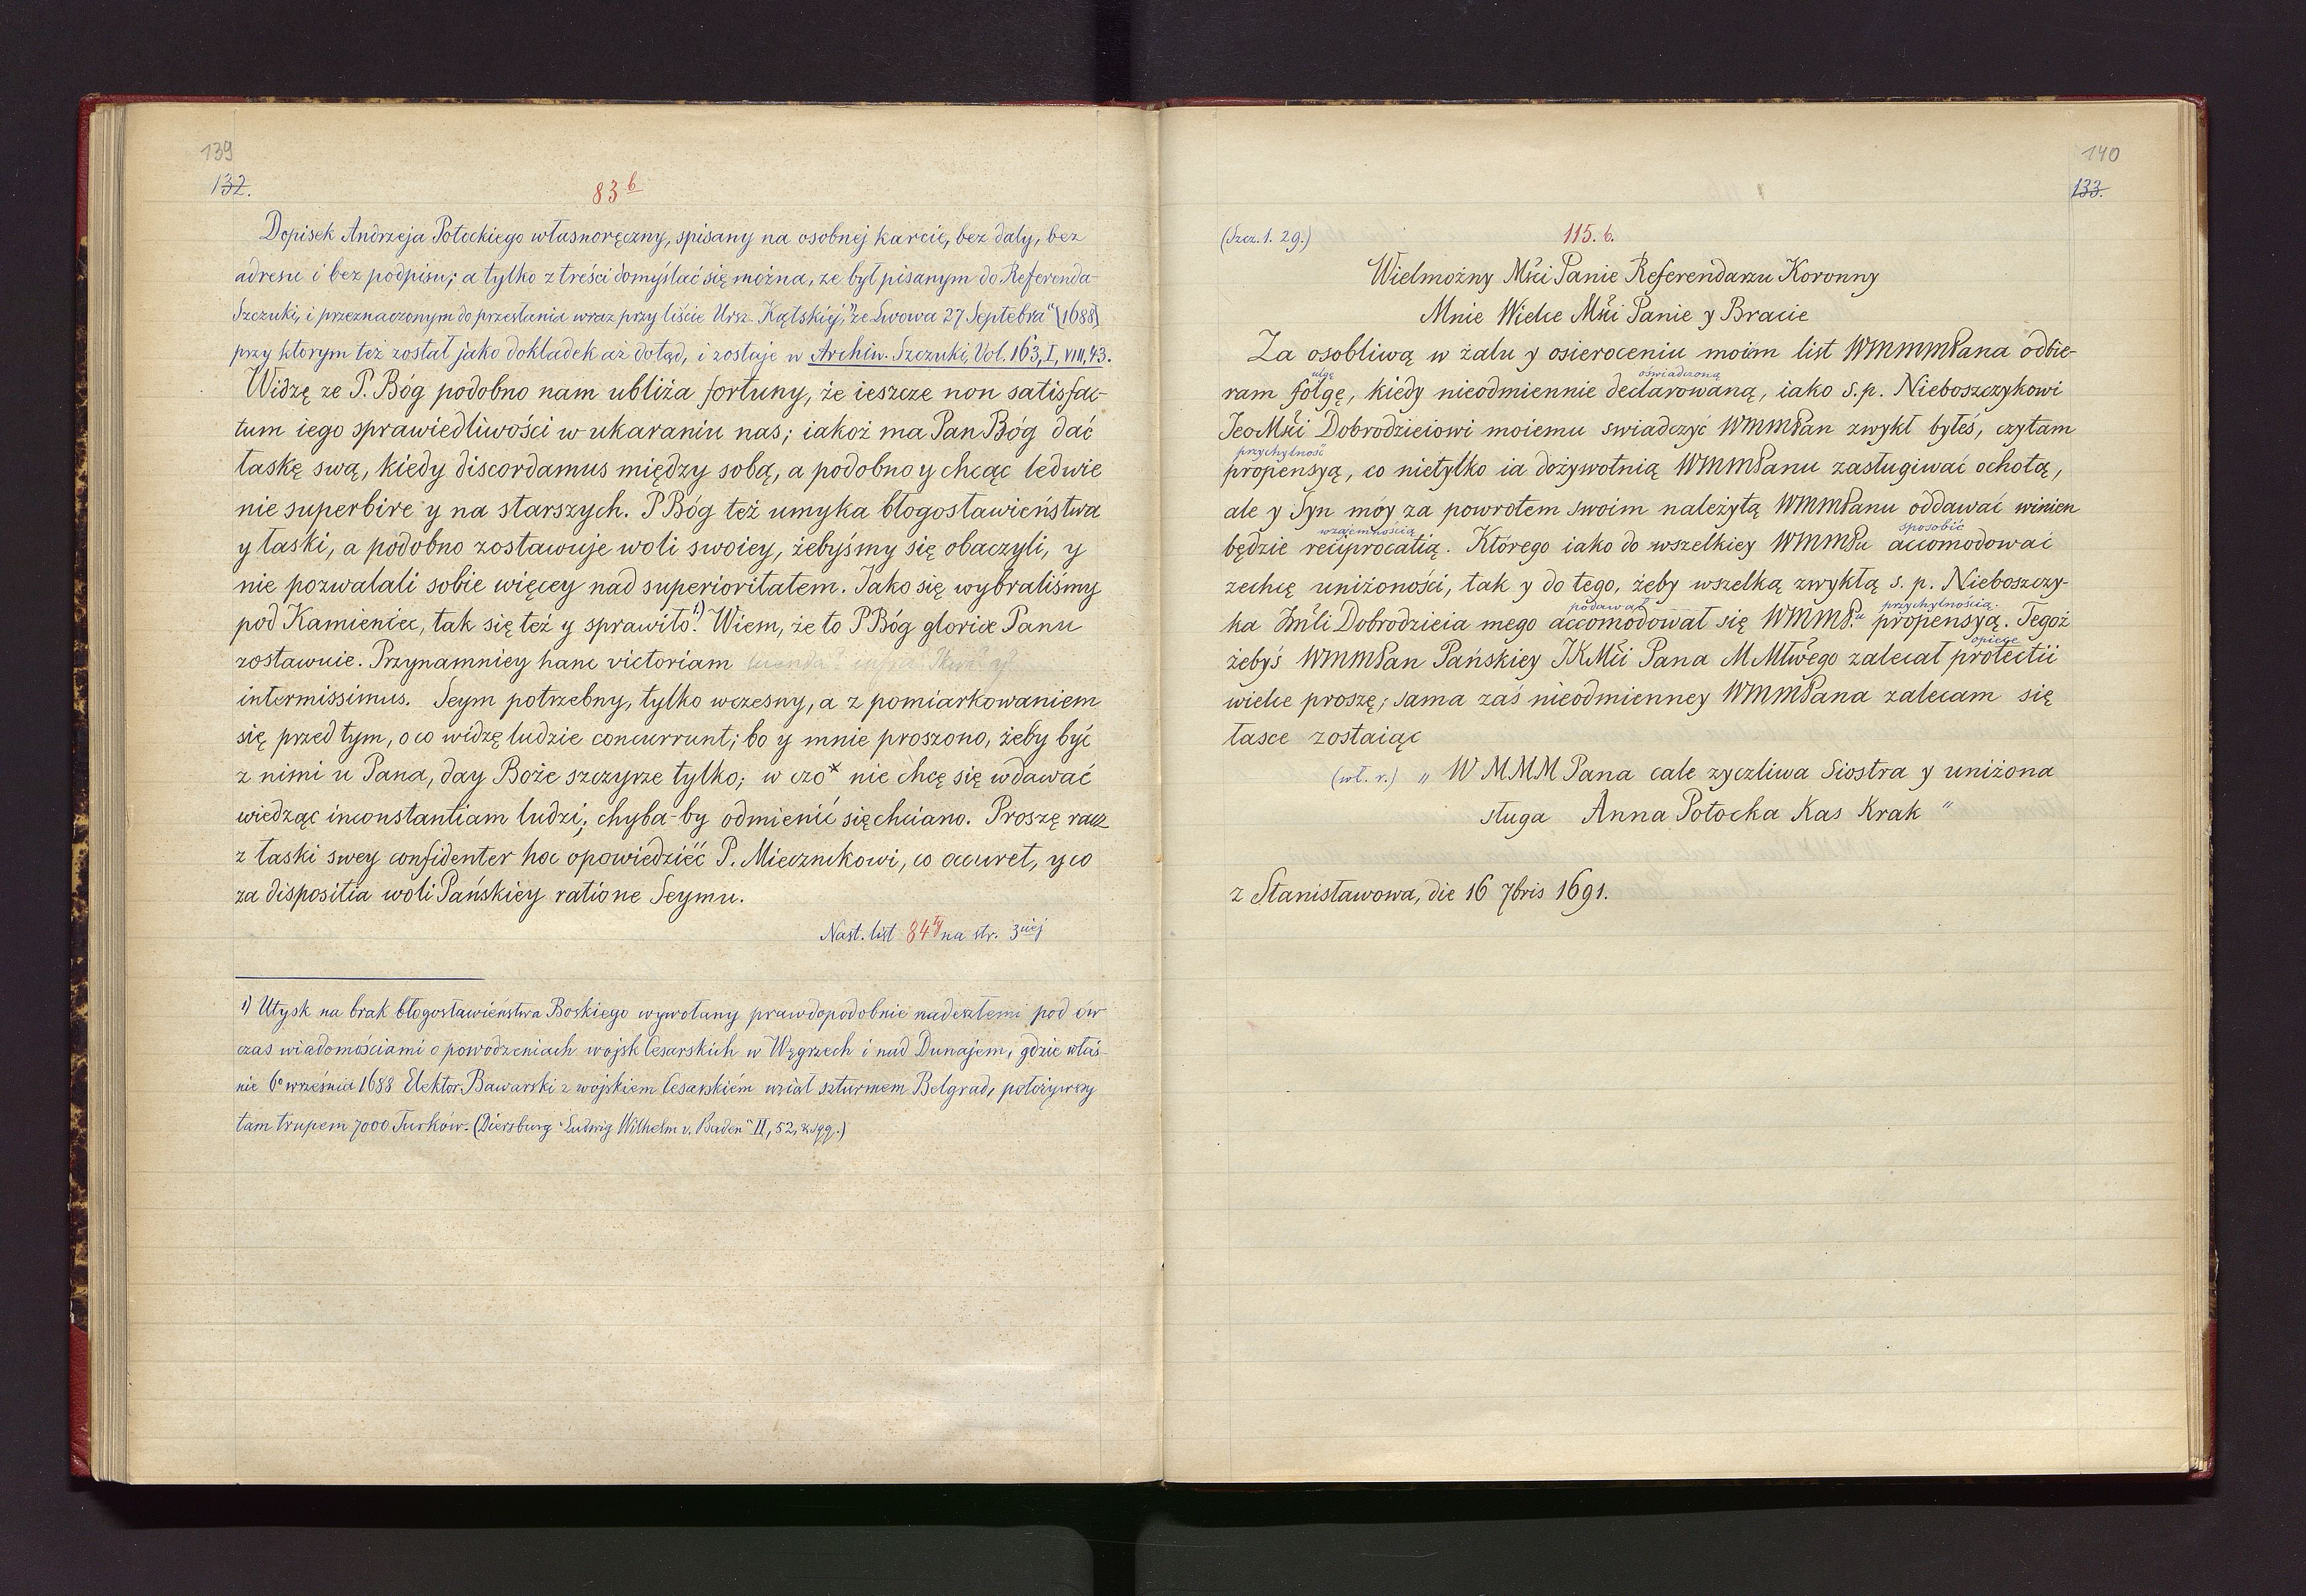 139
132.
83 b
Dopisek Andrzeja Potockiego własnoręczny, spisany na osobnej karcie, bez daty, bez
adresu i bez podpisu; a tylko z treści domyślać się można, że był pisanym do Referenda-
Szczuki, i przeznaczonym do przesłania wraz przy liście Ursz. Kątskiéj, "ze Lwowa 27 Septebra" (1688)
przy którym też został jako dokładek aż dotąd, i zostaje w Archiw. Szczuki, Vol. 163, I, VIII, 43.
Widzę ze P. Bóg podobno nam ubliża fortuny, że ieszcze non satisfac-
tum iego sprawiedliwości w ukaraniu nas; iakoż ma Pan Bóg dać
łaskę swą, kiedy discordamus między sobą, a podobno y chcąc ledwie
nie superbire y na starszych. P Bóg też umyka błogosławieństwa
y łaski, a podobno zostawuje woli swoiey, żebyśmy się obaczyli, y
nie pozwalali sobie więcey nad superioritatem. Jako się wybraliśmy
pod Kamieniec, tak się też y sprawiło. 1) Wiem, że to P Bóg gloriæ Panu
zostawuie. Przynamniey hanc victoriam
intermissimus. Seym potrzebny, tylko wczesny, a z pomiarkowaniem
się przed tym, o co widzę ludzie concurrunt; bo y mnie proszono, żeby być
z nimi u Pana, day Boże szczyrze tylko; w czo* nie chcę się wdawać
wiedząc inconstantiam ludzi; chyba-by odmienić się chciano. Proszę racz
z łaski swey confidenter hoc opowiedzieć P. Miecznikowi, co occuret, y co
za dispositia woli Pańskiey ratione Seymu.
Nast. list 84ty na str. 3ciéj
1) Utysk na brak błogosławieństwa Boskiego wywołany prawdopodobnie nadeszłemi pod ów
czas wiadomościami o powodzeniach wojsk Cesarskich w Węgrzech i nad Dunajem, gdzie właś-
nie 6o września 1688 Elektor Bawarski z wojskiem Cesarskiém wziął szturmem Belgrad, położywszy
tam trupem 7000 Turków. (Diersburg "Ludwig Wilhelm v. Baden" II, 52, & sqq.)
140
133.
(Szcz. 1. 29.)
115. b.
Wielmożny Mści Panie Referendarzu Koronny
Mnie Wielce Mści Panie y Bracie
Za osobliwą w żalu y osieroceniu moim list WMMMPana odbie-
ulgę oświadczoną
ram folgę, kiedy nieodmiennie declarowaną, iako s. p. Nieboszczykowi
JeoMści Dobrodzieiowi moiemu swiadczyć WMMPan zwykł byłeś, czytam
przychylność
propensyą, co nietylko ia dożywotnią WMMPanu zasługiwać ochotą,
ale y Syn móy za powrotem swoim należytą WMMPanu oddawać winien
wzajemnością sposobić
będzie reciprocatią. Którego iako do wszelkiey WMMPu accomodować
zechcę uniżoności, tak y do tego, żeby wszelką zwykłą s. p. Nieboszczy-
podawał przychylnością
ka Dobrodzieia mego accomodował się WMMPu propensyą. Tegoż
opiece
żebyś WMMPan Pańskiey JKMści Pana MMłwego zalecał protectii
wielce proszę; sama zaś nieodmienney WMMPana zalecam się
łasce zostaiąc
(wł. r.) „ WMMMPana cale zyczliwa Siostra y uniżona
sługa Anna Potocka Kas Krak "
z Stanisławowa, die 16 7bris 1691.